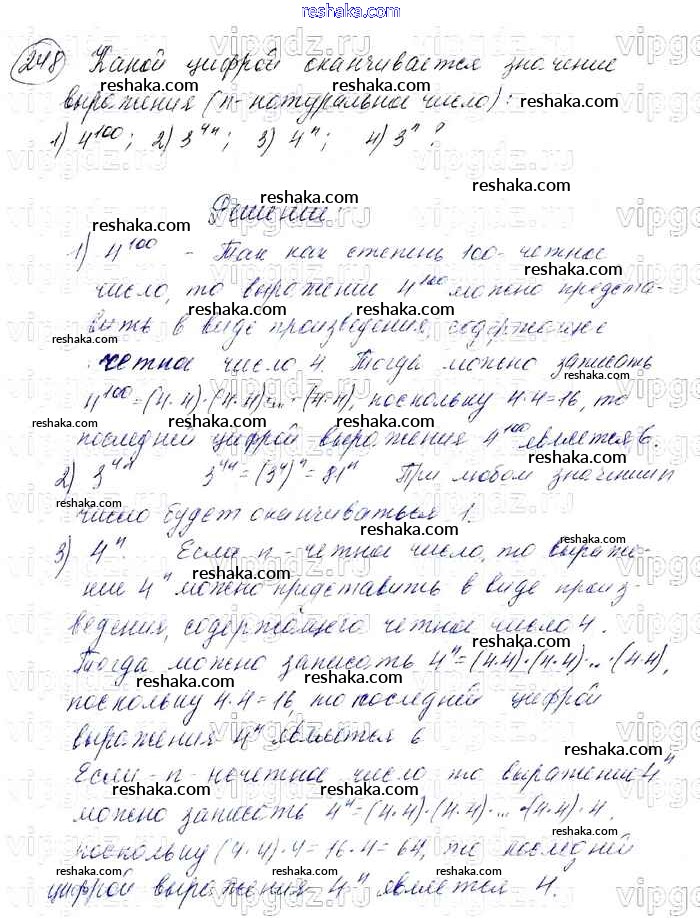 248 Какой цифрой оканчивается значение
выражения (n - натуральное число):
1) 4¹⁰⁰; 2) 3⁴ⁿ; 3) 4ⁿ; 4) 3ⁿ?
Решение:
1) 4¹⁰⁰ - Так как степень 100 - четное
число, то выражении 4¹⁰⁰ можно предста-
вить в виде произведения, содержащее
четное число 4. Тогда можно записать
4¹⁰⁰=(4·4)·(4·4)·...·(4·4), поскольку 4·4=16, то
последней цифрой выражения 4¹⁰⁰ является 6.
2) 3⁴ⁿ 3⁴ⁿ=(3⁴)ⁿ=81ⁿ При любом значении n
число будет оканчиваться 1.
3) 4ⁿ Если n - четное число, то выраже-
ние 4ⁿ можно представить в виде произ-
ведения, содержащего четное число 4.
Тогда можно записать 4ⁿ=(4·4)·(4·4)·...·(4·4),
поскольку 4·4=16, то последней цифрой
выражения 4ⁿ является 6
Если - n - нечетное число то выражение 4ⁿ
можно записать 4ⁿ=(4·4)·(4·4)·...·(4·4)·4,
поскольку (4·4)·4=16·4=64, то последней
цифрой выражения 4ⁿ является 4.
reshaka.com
vipgdz.ru